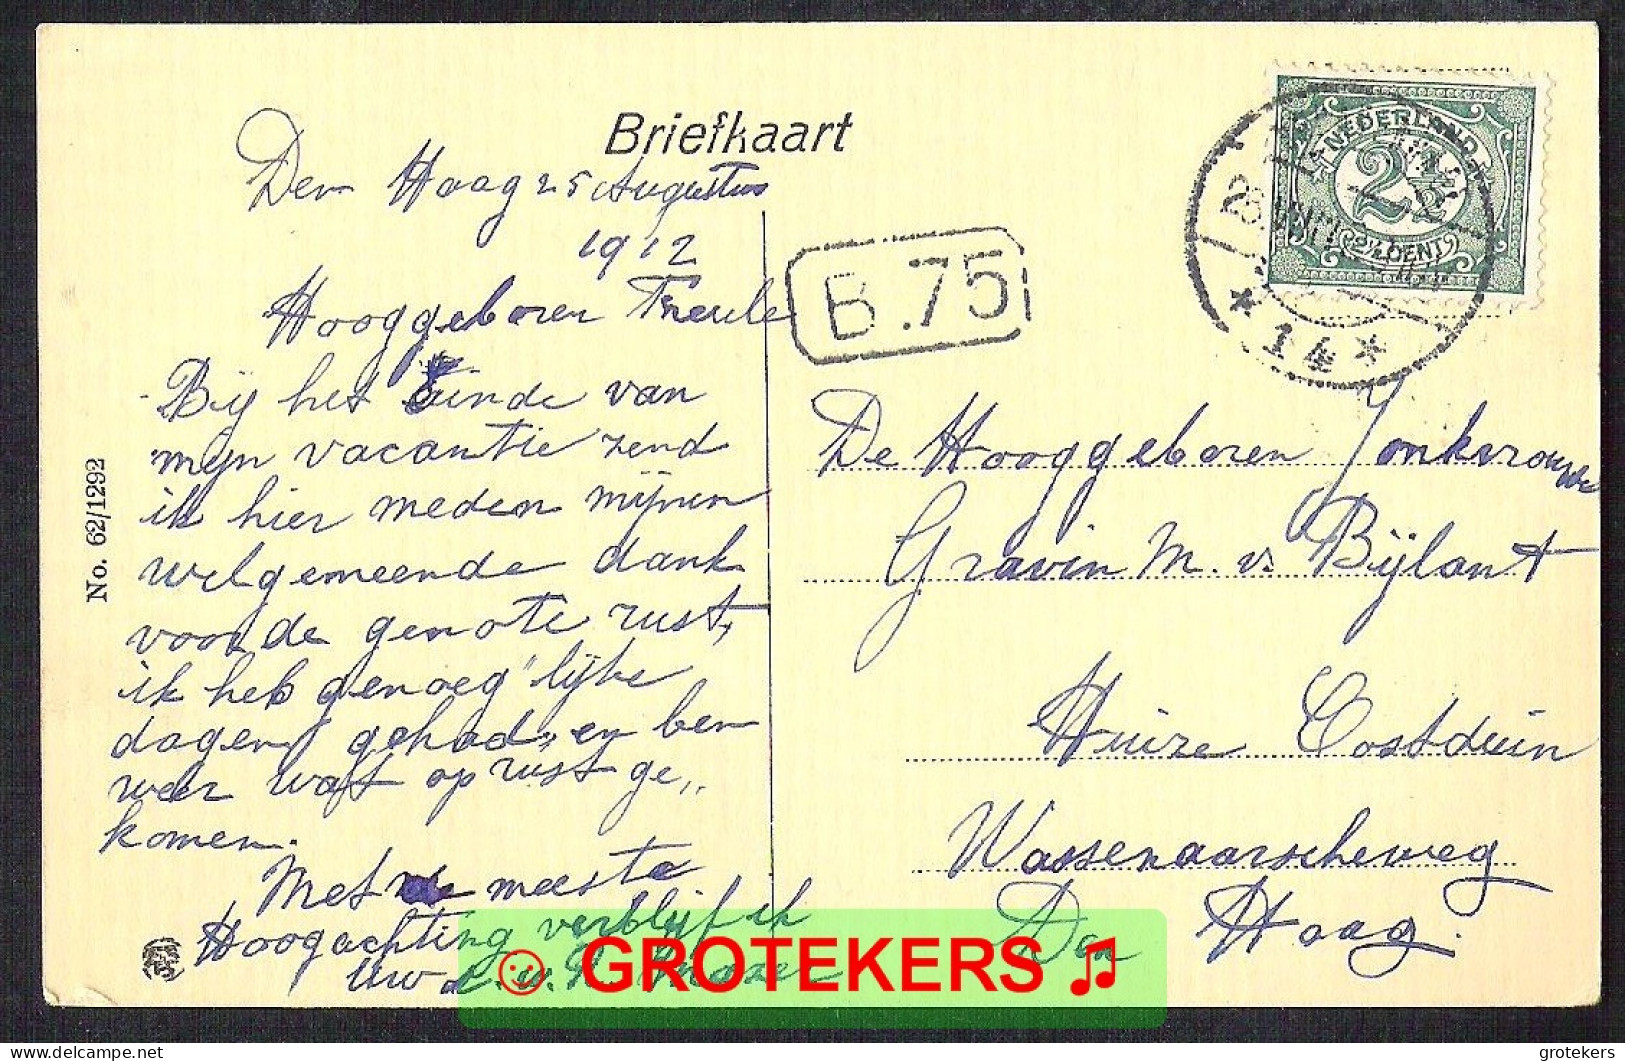 Briefkaart
Den Haag 25 Augustus
1912
Hooggeboren Freule
Bij het Einde van
mijn vacantie zend
ik hier meden mijnen
welgemeende dank
voor de genote rust,
ik heb genoeg"lijke
dagen gehad, en ben
weer wat op rust ge„
komen.
Met de meeste
Hoogachting verblijf ik
Uw d.w.
No. 62/1292
B.75
NEDERLAND
2½
2½ CENT
* 14 *
De Hooggeboren Jonkvrouwe
Gravin M. v. Bijlant
Huize Oostduin
Wassenaarscheweg
Den Haag.
GROTEKERS
delcampe.net
grotekers